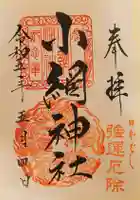 奉拝
強運厄除
小網神社
令和五年五月四日